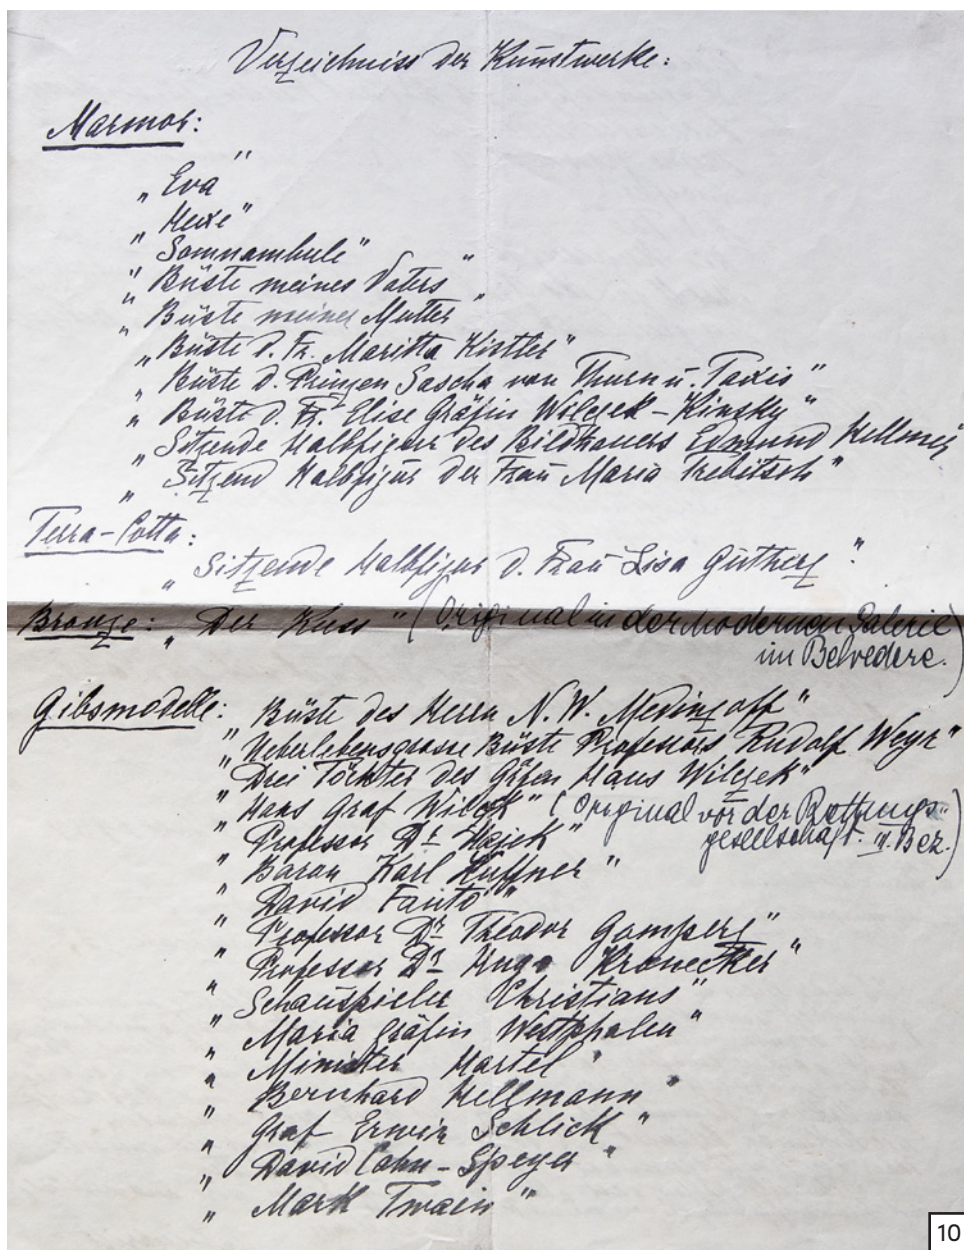 Verzeichniss der Kunstwerke:
Marmor:
„Eva"
„Hexe"
„Somnambule"
„Büste meines Vaters"
„Büste meiner Mutter"
„Büste d. Fr. Maritta Kistler"
„Büste d. Prinzen Sascha von Thurn u. Taxis"
„Büste d. Fr. Elise Gräfin Wilczek-Kinsky"
„Sitzende Halbfigur des Bildhauers Edmund Hellmer
„Sitzend Halbfigur der Frau Maria Trebitsch"
Terra-Cotta:
„Sitzende Halbfigur d. Frau Lisa Gutherz"
Bronze: „Der Kuss" (Original in der modernen Galerie
im Belvedere.)
Gibsmodelle: „Büste des Herrn N. W. Medinzoff"
„Ueberlebensgrosse Büste Professors Rudolf Weyr"
„Drei Töchter des Gräfen Hans Wilczek"
„Hans Graf Wilczek" (Original vor der Rettungs-
gesellschaft. III. Bez.)
„Professor Dr Hajek"
„Baron Karl Kuffner"
„David Fanto"
„Professor Dr Theodor Gomperz"
„Professor Dr Hugo Kronecker"
„Schauspieler Christians"
„Maria Gräfin Westphalen"
„Minister Hartel"
„Bernhard Hellmann"
„Graf Erwin Schlick"
„David Cohn-Speyer"
„Mark Twain"
10